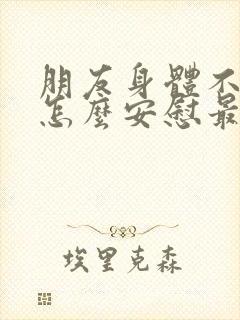 朋友身體不
怎麼安慰最
埃里克森